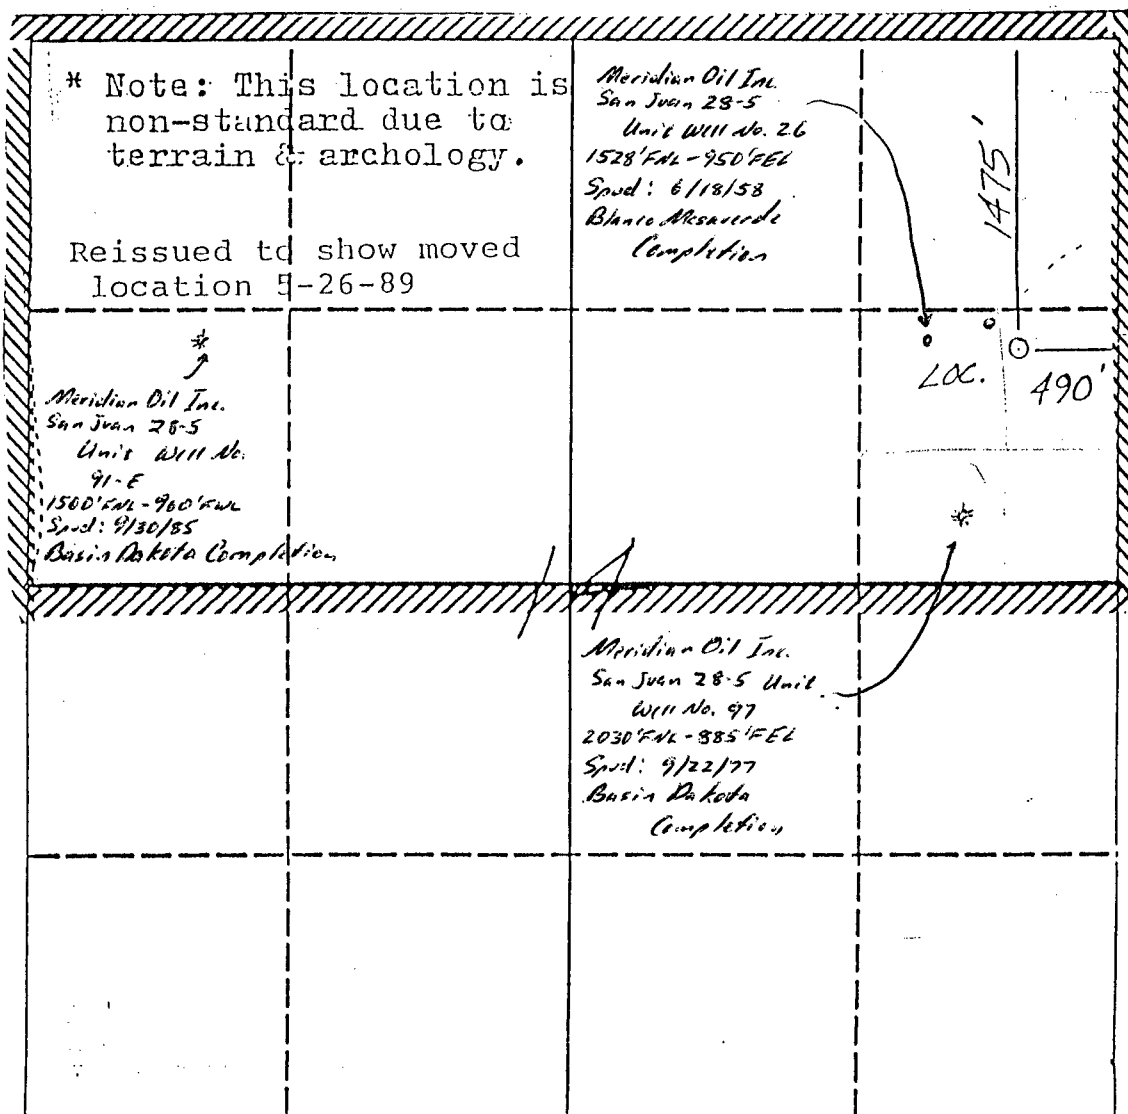 * Note: This location is
non-standard due to
terrain & archology.
Reissued to show moved
location 5-26-89
Meridian Oil Inc.
San Juan 28-5
Unit Well No. 26
1528'FNL-950'FEL
Spud: 6/18/58
Blanco Mesaverde
Completion
1475'
LOC.
490'
Meridian Oil Inc.
San Juan 28-5
Unit Well No.
91-E
1500'FNL-960'FWL
Spud: 9/30/85
Basin Dakota Completion
14
Meridian Oil Inc.
San Juan 28-5 Unit
Well No. 97
2030'FNL-885'FEL
Spud: 9/22/77
Basin Dakota
Completion